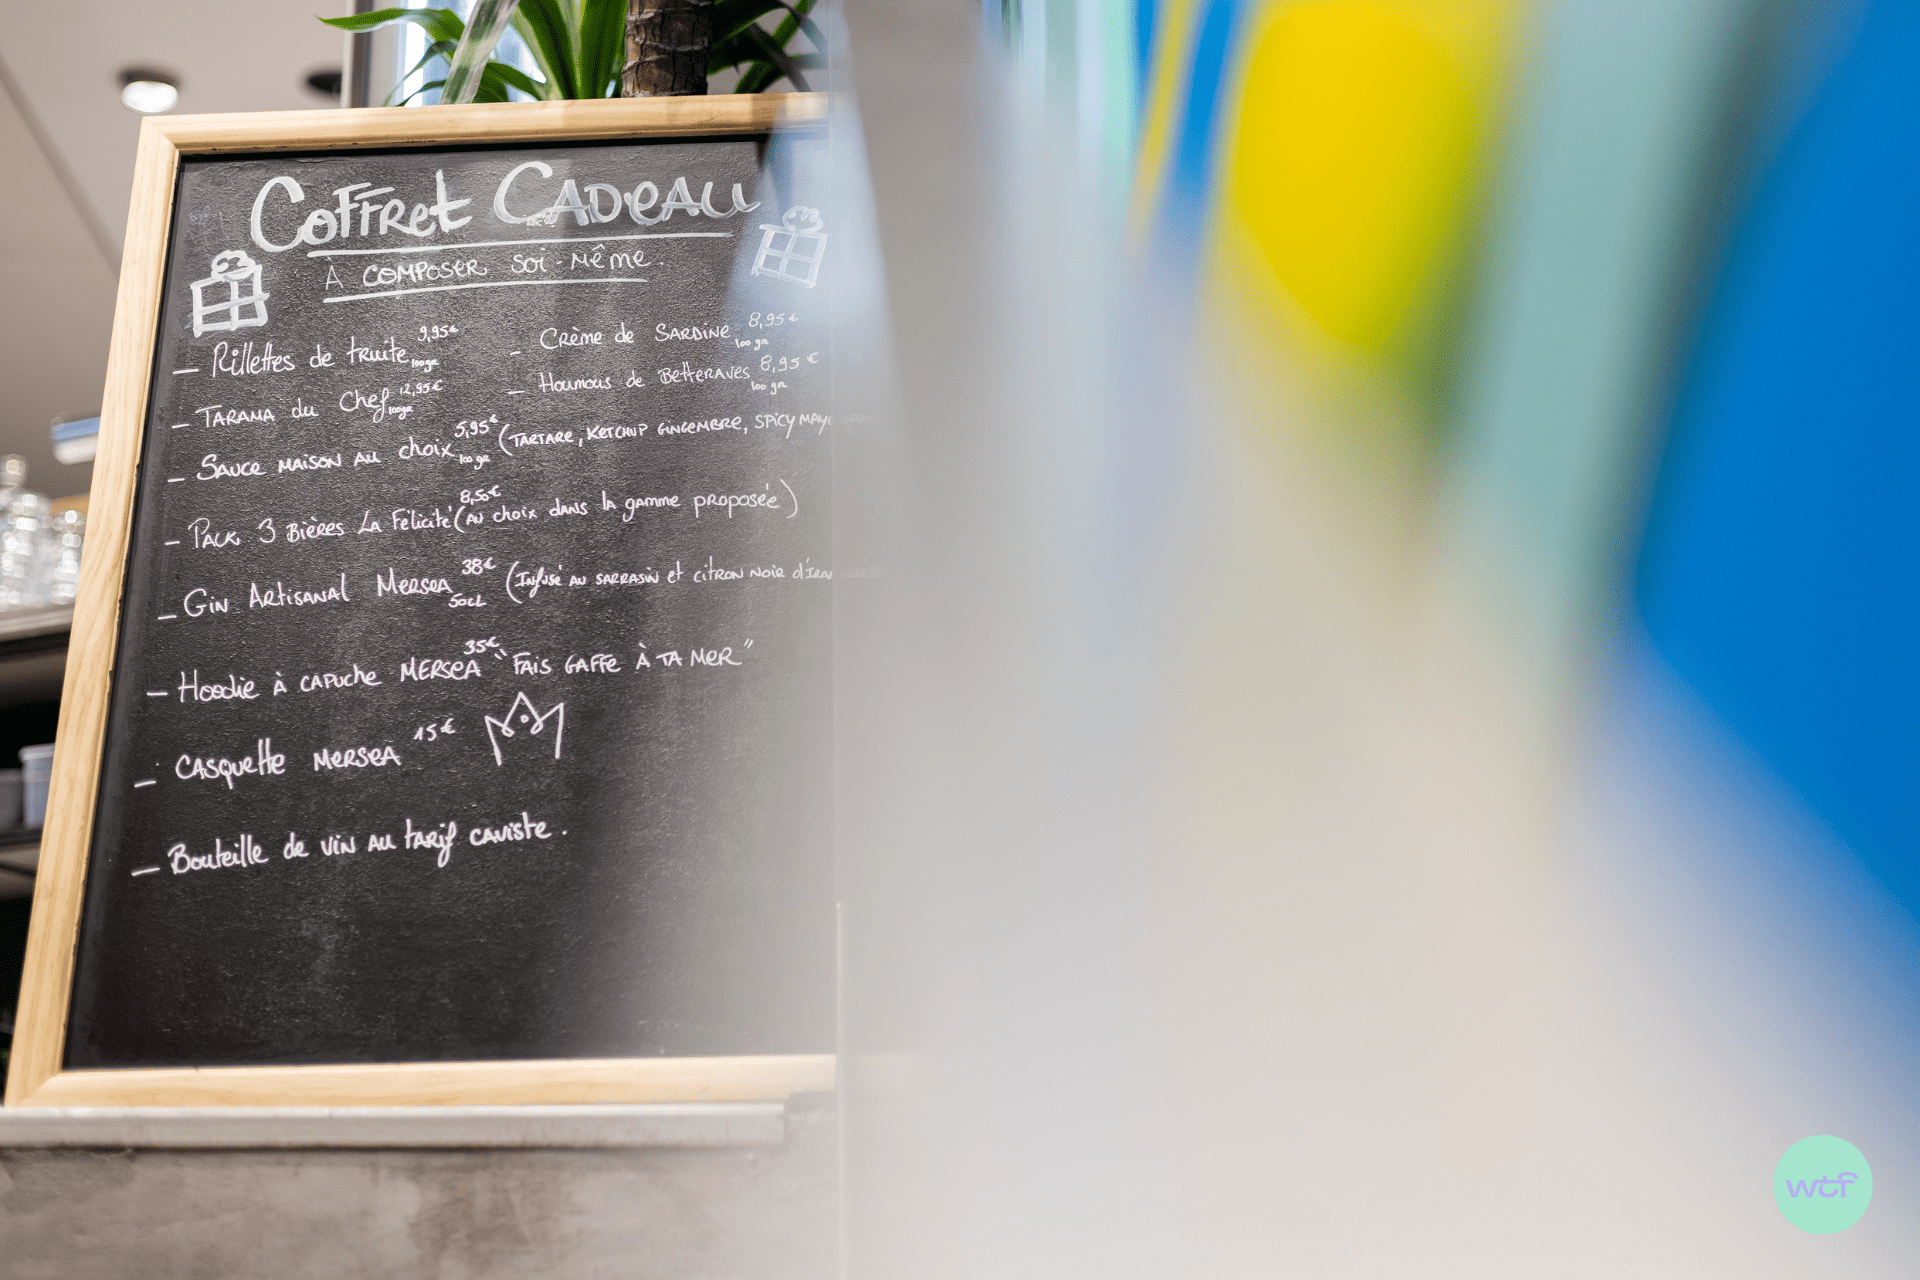 Coffret Cadeau
À composer soi-même.
– Rillettes de truite 9,95€ 100gr
– Crème de Sardine 8,95€ 100 gr
– Tarama du Chef 12,95€ 100gr
– Houmous de Betteraves 8,95€ 100 gr
– Sauce maison au choix 5,95€ 100 gr (Tartare, Ketchup gingembre, spicy mayo
– Pack 3 Bières La Félicité 8,50€ (au choix dans la gamme proposée)
– Gin Artisanal Mersea 38€ 50cl (Infusé au sarrasin et citron noir
– Hoodie à capuche Mersea 35€ "Fais gaffe à ta mer"
– Casquette Mersea 15€
– Bouteille de vin au tarif caviste.
wtf